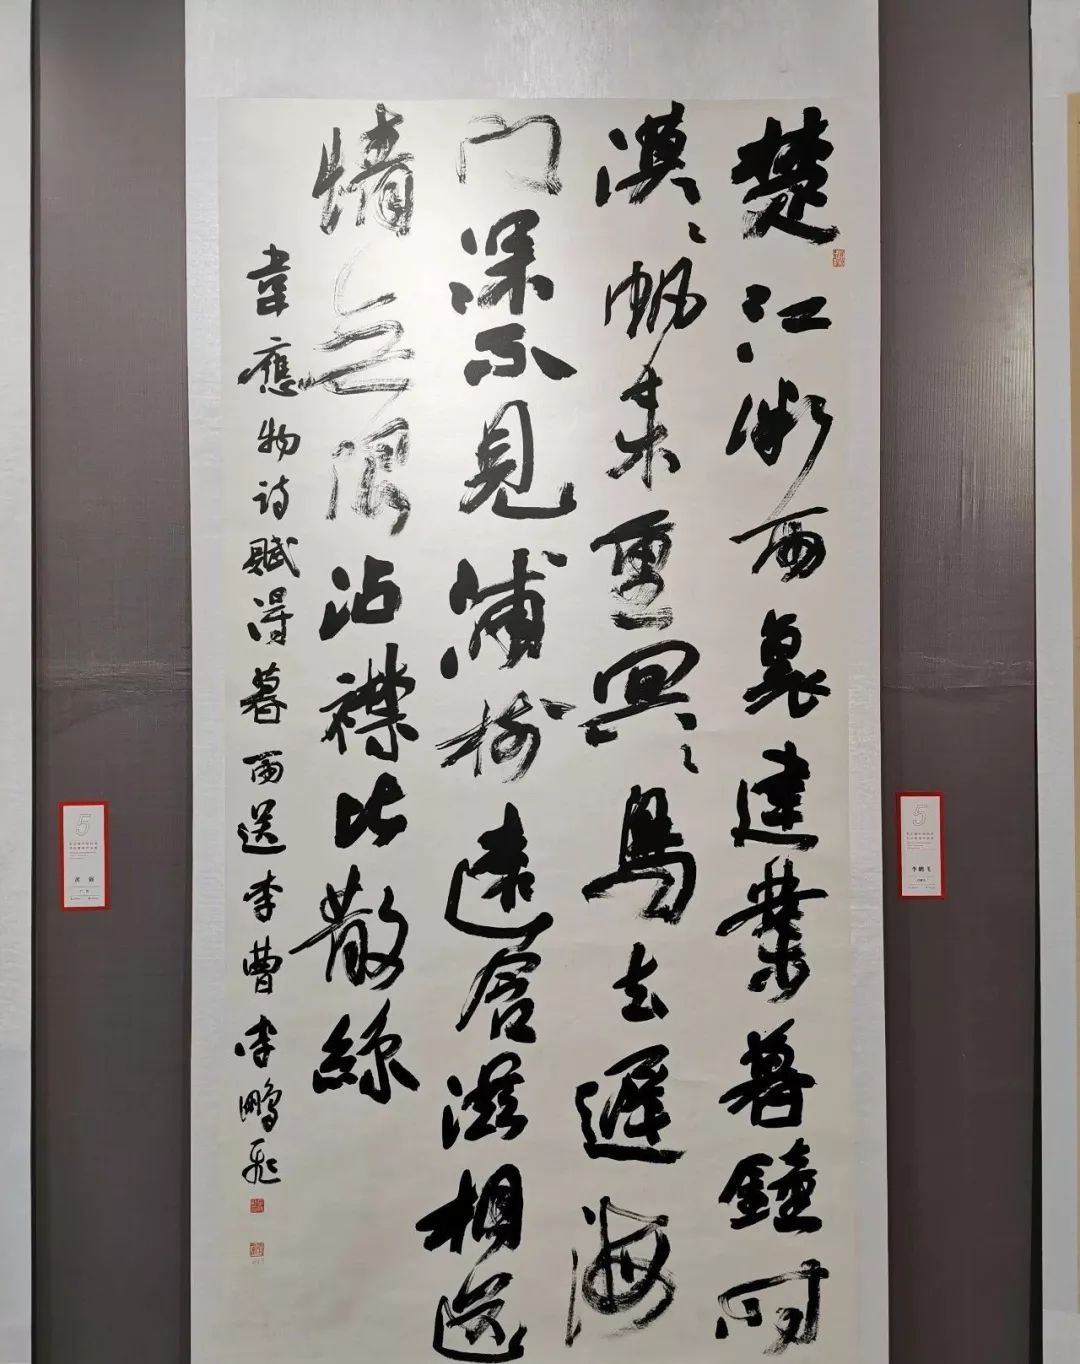 楚江微雨裏建業暮鐘時
漠〻帆來重冥〻鳥去遲海
門深不見浦樹遠含滋相送
情無限沾襟比散絲
韋應物詩賦得暮雨送李曹李鵬飛
5
5
李鹏飞